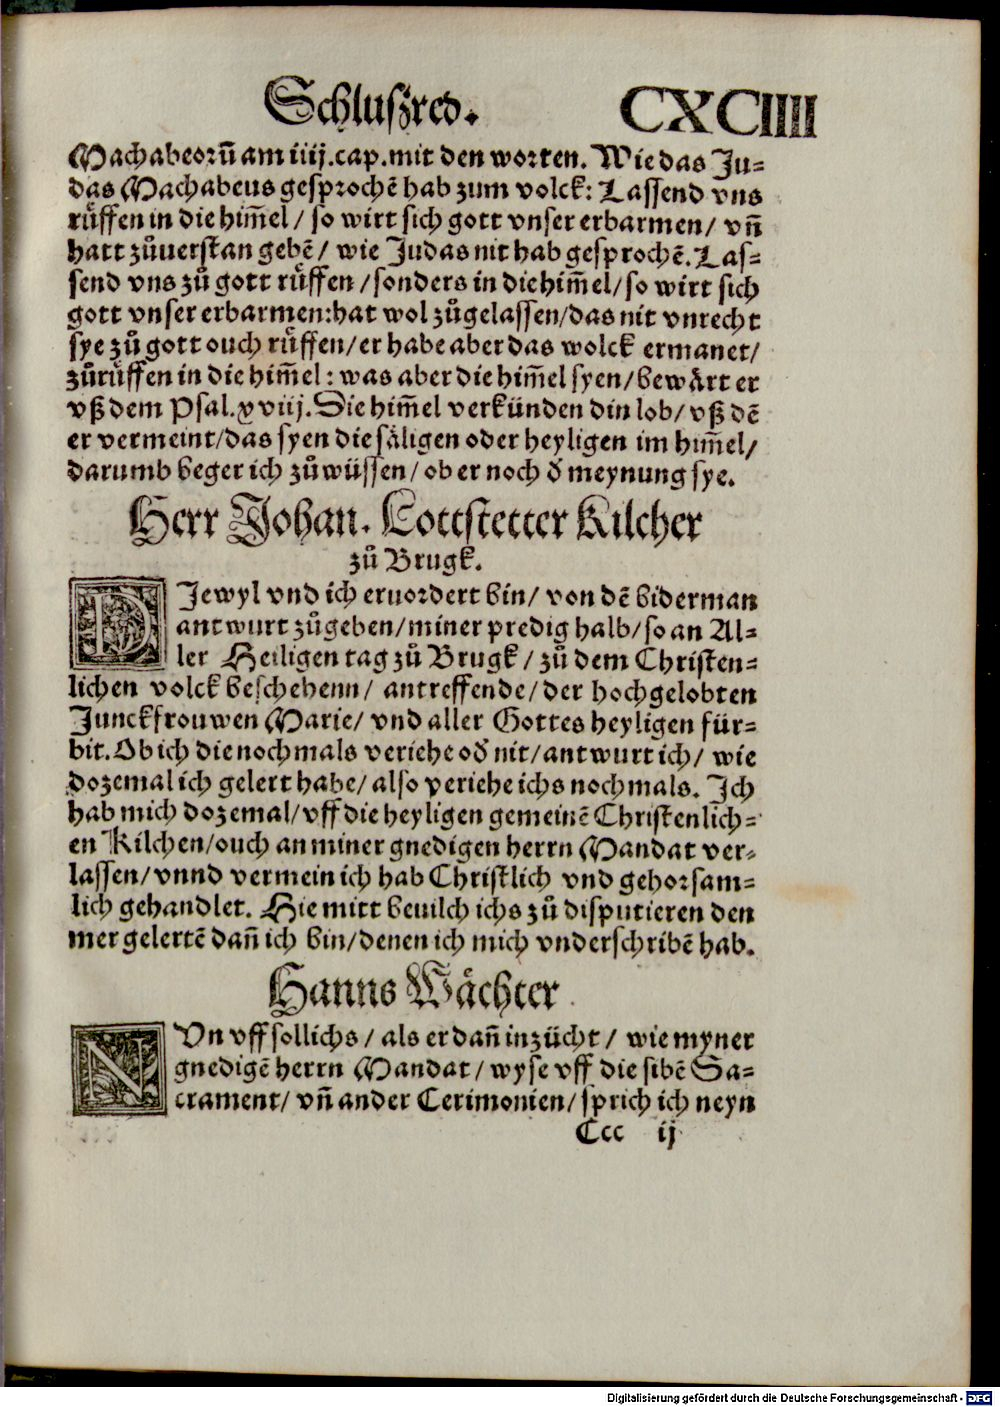 Schluszred. CXCIIII
Machabeorū am iiij. cap. mit den worten. Wie das Ju-
das Machabeus gesprochē hab zum volck: Lassend vns
rüffen in die him̄el / so wirt sich gott vnser erbarmen / vn̄
hatt zůuerstan gebē / wie Judas nit hab gesprochē. Las-
send vns zů gott rüffen / sonders in die him̄el / so wirt sich
gott vnser erbarmen: hat wol zůgelassen / das nit vnrecht
sye zů gott ouch rüffen / er habe aber das wolck ermanet /
zůrüffen in die him̄el: was aber die him̄el syen / bewärt er
vß dem Psal. xviij. Die him̄el verkünden din lob / vß dē
er vermeint / das syen die säligen oder heyligen im him̄el /
darumb beger ich zůwüssen / ob er noch d̓ meynung sye.
Herr Johan. Lottstetter Kilcher
zů Brugk.
DJewyl vnd ich eruordert bin / von dē biderman
antwurt zůgeben / miner predig halb / so an Al-
ler Heiligen tag zů Brugk / zů dem Christen-
lichen volck beschehenn / antreffende / der hochgelobten
Junckfrouwen Marie / vnd aller Gottes heyligen für-
bit. Ob ich die nochmals veriehe od̓ nit / antwurt ich / wie
dozemal ich gelert habe / also veriehe ichs nochmals. Ich
hab mich dozemal / vff die heyligen gemeinē Christenlich-
en Kilchen / ouch an miner gnedigen herrn Mandat ver-
lassen / vnnd vermein ich hab Christlich vnd gehorsam-
lich gehandlet. Hie mitt beuilch ichs zů disputieren den
mer gelertē dan̄ ich bin / denen ich mich vnderschribē hab.
Hanns Wächter
NVn vff sollichs / als er dan̄ inzücht / wie myner
gnedigē herrn Mandat / wyse vff die sibē Sa-
crament / vn̄ ander Cerimonien / sprich ich neyn
Ccc ij
Digitalisierung gefördert durch die Deutsche Forschungsgemeinschaft - DFG